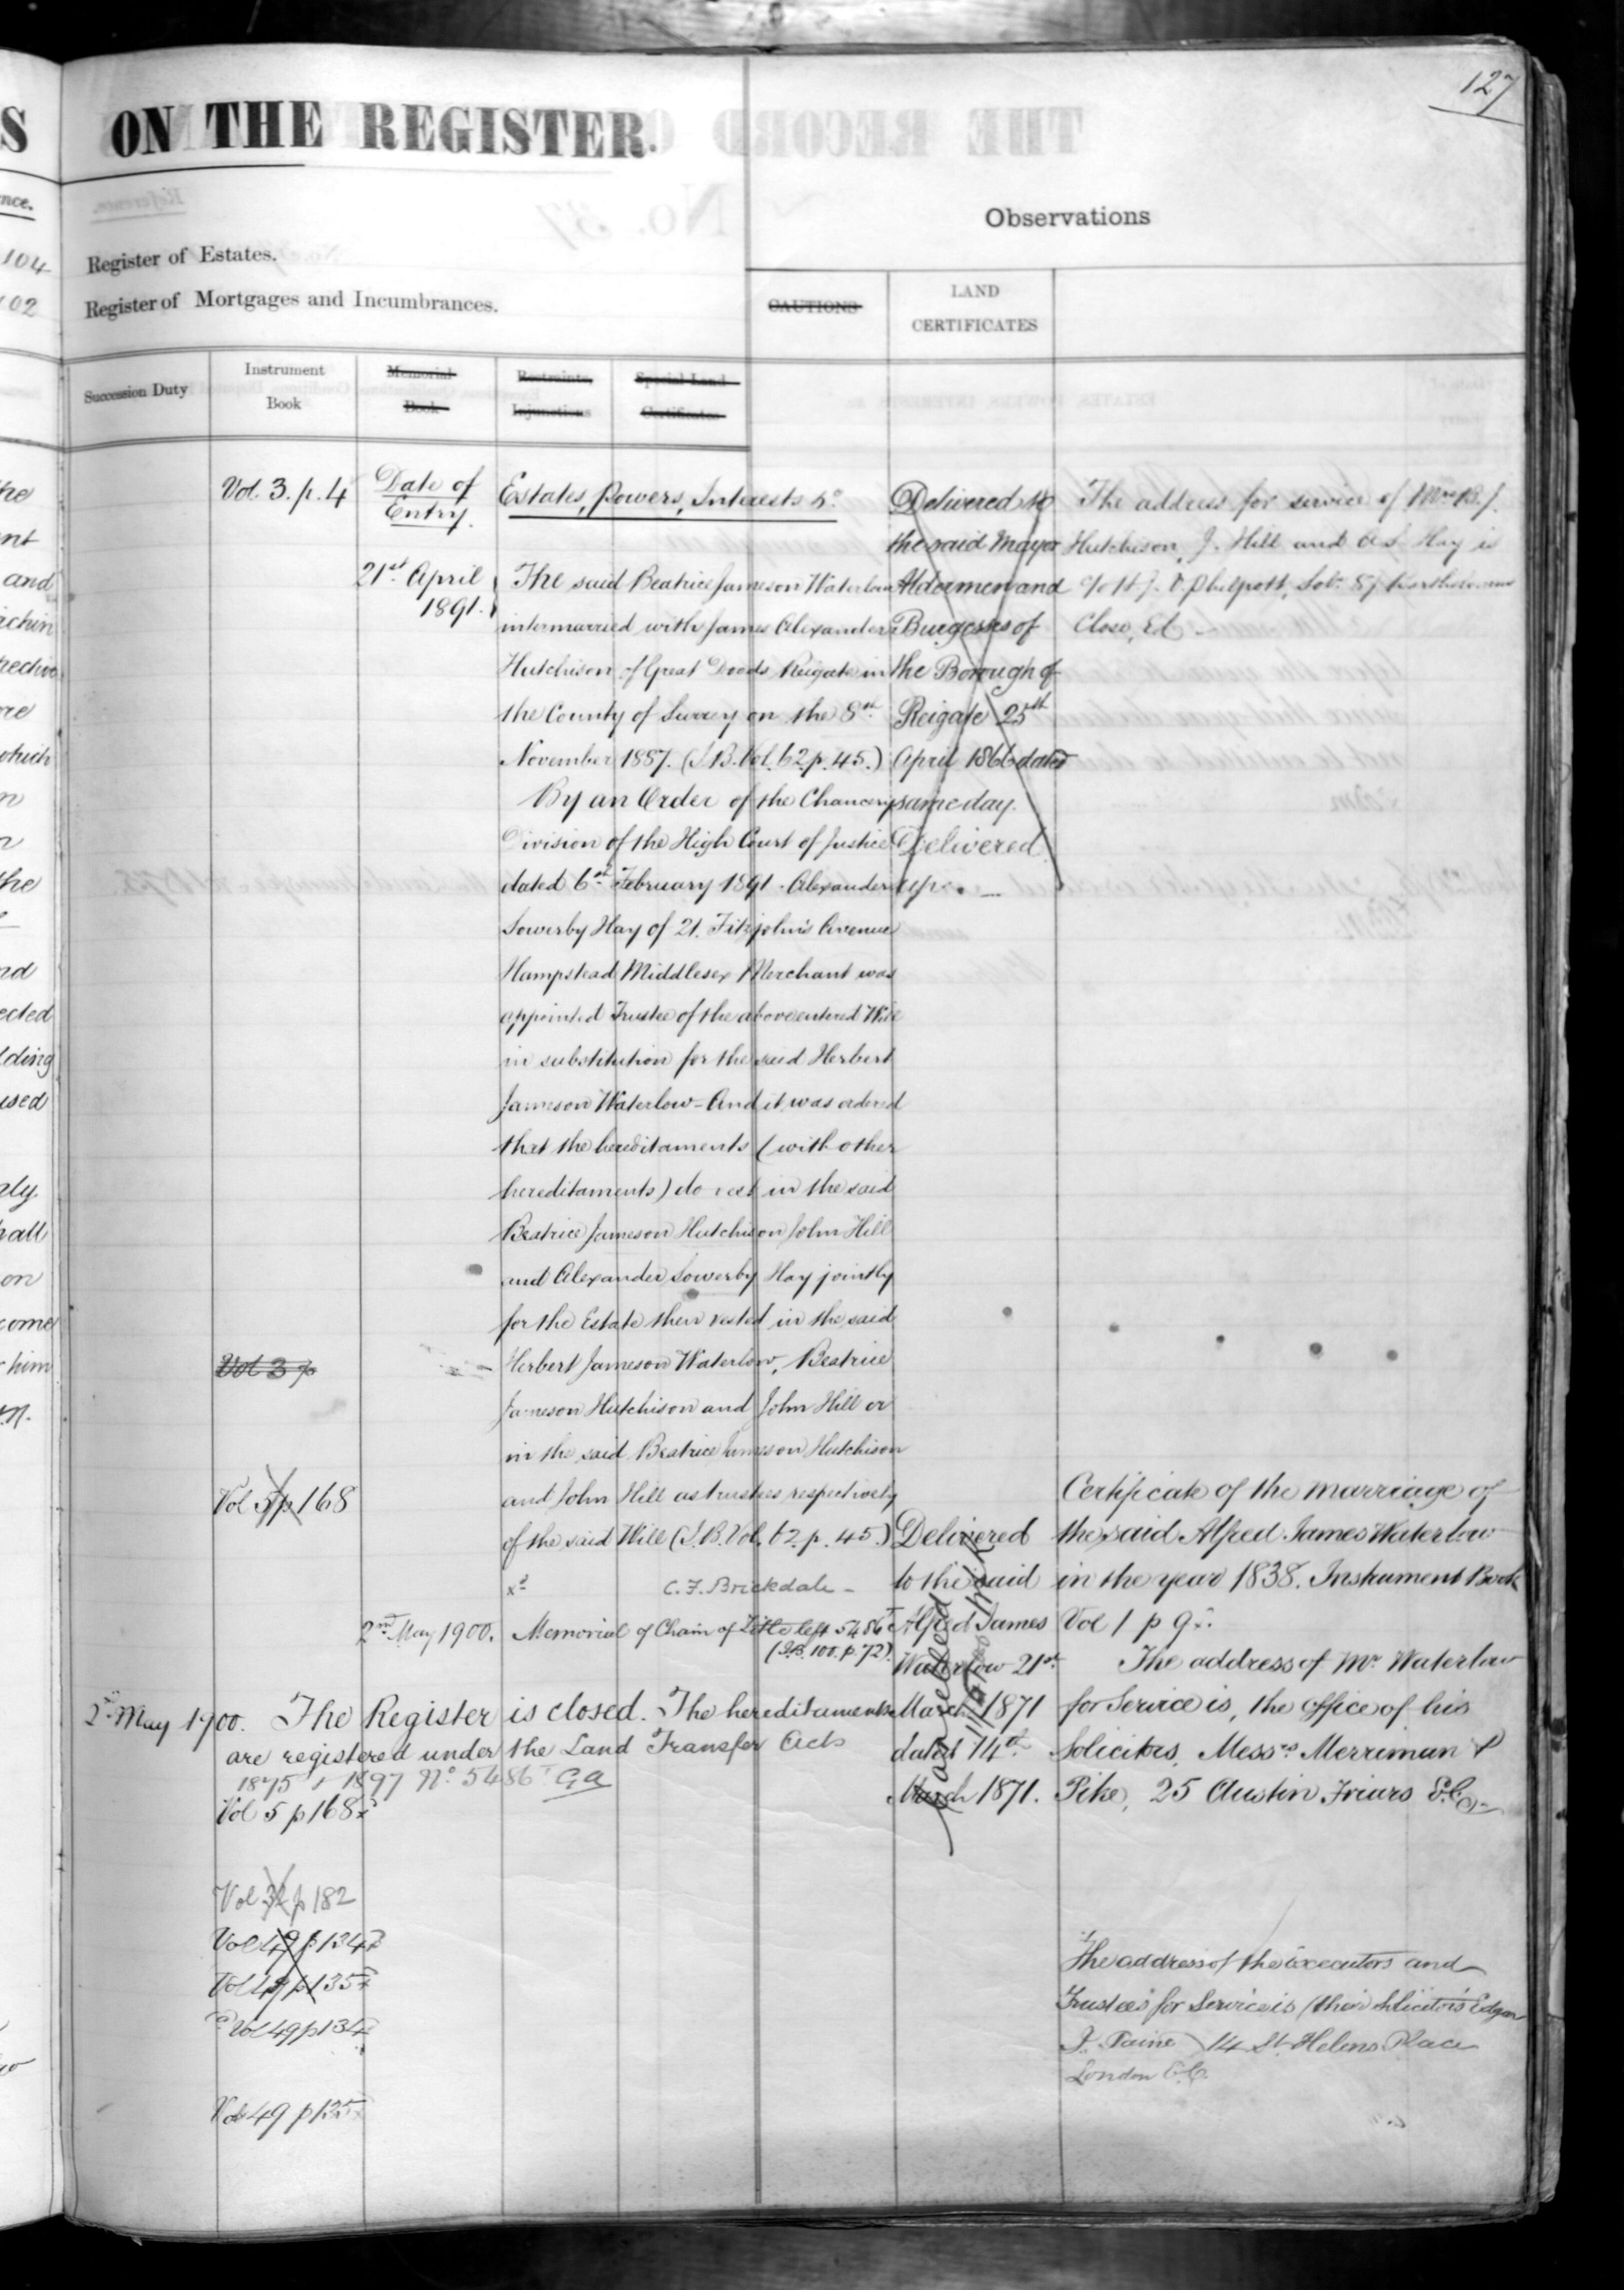 127
S
ON THE REGISTER.
nce.
104
102
Observations
Register of Estates.
Register of Mortgages and Incumbrances.
CAUTIONS
LAND
CERTIFICATES
Succession Duty
Instrument
Book
Memorial
Book
Restraints,
Injunctions
Special Land
Certificates
Vol. 3. p. 4
Vol 3 p
Vol 5 p 168
Date of
Entry.
21st April
1891.
Estates, Powers, Interests &c.
The said Beatrice Jameson Waterlow
intermarried with James Alexander
Hutchison of Great Doods Reigate in
the County of Surrey on the 8th
November 1887. (I.B. Vol. 62 p. 45.)
By an Order of the Chancery
Division of the High Court of Justice
dated 6th February 1891. Alexander
Sowerby Hay of 21. Fitzjohn's Avenue
Hampstead Middlesex Merchant was
appointed Trustee of the above entered Will
in substitution for the said Herbert
Jameson Waterlow - And it was ordered
that the hereditaments (with other
hereditaments) do vest in the said
Beatrice Jameson Hutchison John Hill
and Alexander Sowerby Hay jointly
for the Estate then vested in the said
Herbert Jameson Waterlow, Beatrice
Jameson Hutchison and John Hill or
in the said Beatrice Jameson Hutchison
and John Hill as trustees respectively
of the said Will (I.B. Vol. 62. p. 45.)
xd
C. F. Brickdale -
2nd May 1900. Memorial of Chain of Title left 5486T
(I.B. 100. p. 72).
2nd May 1900. The Register is closed. The hereditaments
are registered under the Land Transfer Acts
1875 & 1897 No. 5486T GA
Vol 5 p 168
Vol 32 p 182
Vol 49 p 134
Vol 49 p 135
Vol 49 p 134
Vol 49 p 135
Delivered to
the said Mayor
Aldermen and
Burgesses of
the Borough of
Reigate 25th
April 1866 dated
same day.
Delivered
Delivered
to the said
Alfred James
Waterlow 21st
March 1871
dated 14th
March 1871.
Cancelled
The address for service of Mrs B. J.
Hutchison, J. Hill and A S Hay is
c/o H. J. V. Philpott, Solr. 87 Bartholomew
Close, Ed
Certificate of the marriage of
the said Alfred James Waterlow
in the year 1838. Instrument Book
Vol 1 p 9
The address of Mr. Waterlow
for Service is, the office of his
Solicitors, Messrs Merriman &
Pike, 25 Austin Friars E.C.
The address of the Executors and
Trustees for Service is (their Solicitors Edgar
J. Paine) 14 St Helens Place
London E.C.